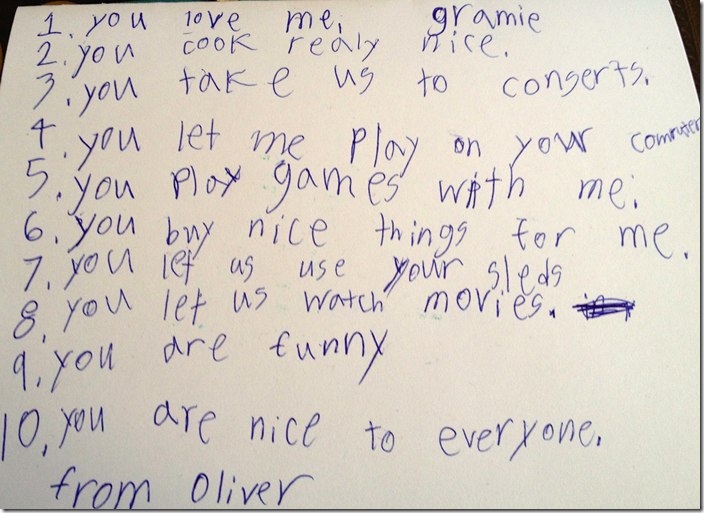 1. you love me. gramie
2. you cook realy nice.
3. you take us to conserts.
4. you let me play on your computer
5. you play games with me.
6. you buy nice things for me.
7. you let us use your sleds
8. you let us watch movies.
9. you are funny
10. you are nice to everyone.
from Oliver